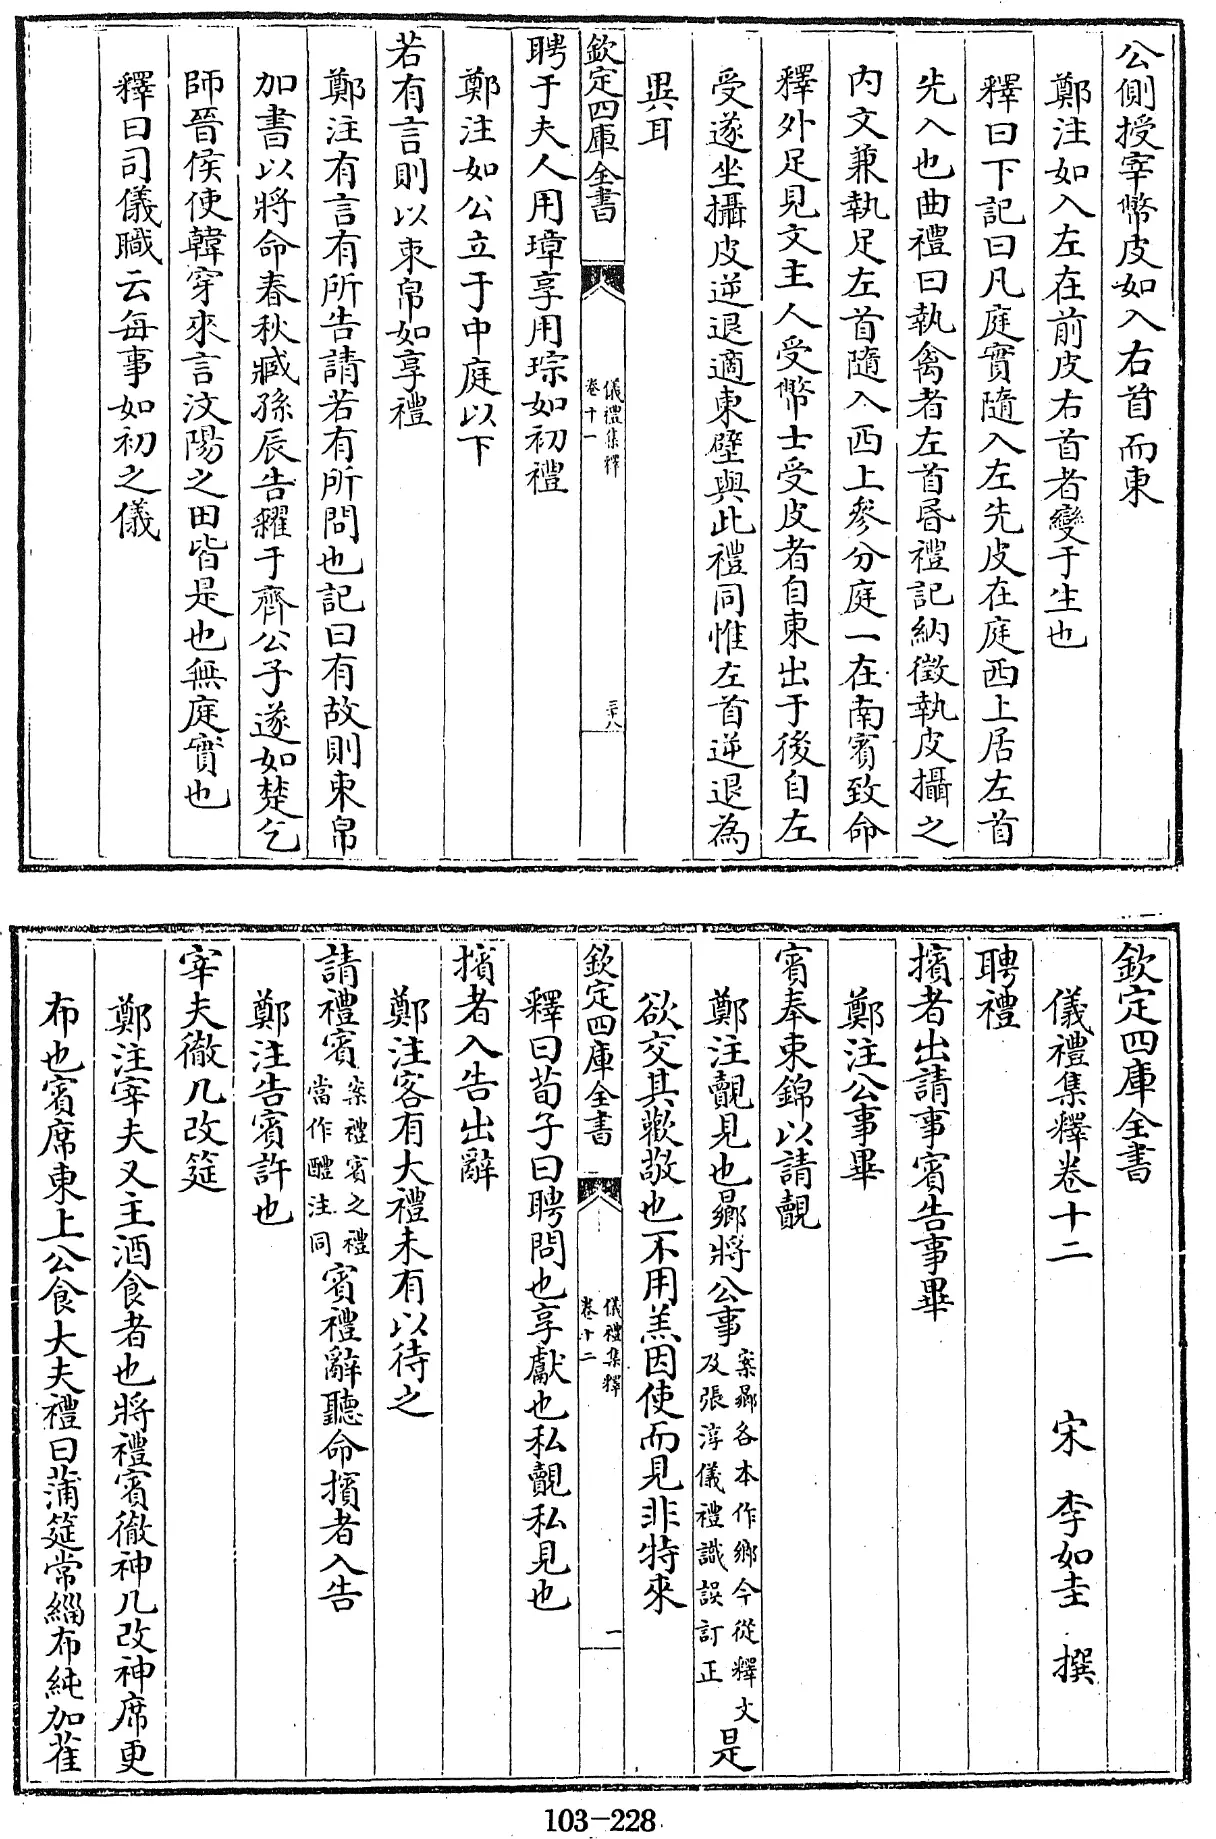 公側授宰幣皮如入右首而東
鄭注如入左在前皮右首者變于生也
釋曰下記曰凡庭實隨入左先皮在庭西上居左首
先入也曲禮曰執禽者左首昏禮記納徵執皮攝之
内文兼執足左首隨入西上參分庭一在南賓致命
釋外足見文主人受幣士受皮者自東出于後自左
受遂坐攝皮逆退適東壁與此禮同惟左首逆退為
異耳
欽定四庫全書
儀禮集釋
卷十一
三十八
聘于夫人用璋享用琮如初禮
鄭注如公立于中庭以下
若有言則以束帛如享禮
鄭注有言有所告請若有所問也記曰有故則束帛
加書以將命春秋臧孫辰告糴于齊公子遂如楚乞
師晉侯使韓穿來言汶陽之田皆是也無庭實也
釋曰司儀職云每事如初之儀
欽定四庫全書
儀禮集釋卷十二 宋 李如圭 撰
聘禮
擯者出請事賓告事畢
鄭注公事畢
賓奉束錦以請覿
鄭注覿見也鄉將公事案鄉各本作鄉今從釋文及張淳儀禮識誤訂正是
欲交其歡敬也不用羔因使而見非特來
欽定四庫全書
儀禮集釋
卷十二
一
釋曰荀子曰聘問也享獻也私覿私見也
擯者入告出辭
鄭注客有大禮未有以待之
請禮賓案禮賓之禮當作醴注同賓禮辭聽命擯者入告
鄭注告賓許也
宰夫徹几改筵
鄭注宰夫又主酒食者也將禮賓徹神几改神席更
布也賓席東上公食大夫禮曰蒲筵常緇布純加萑
103-228